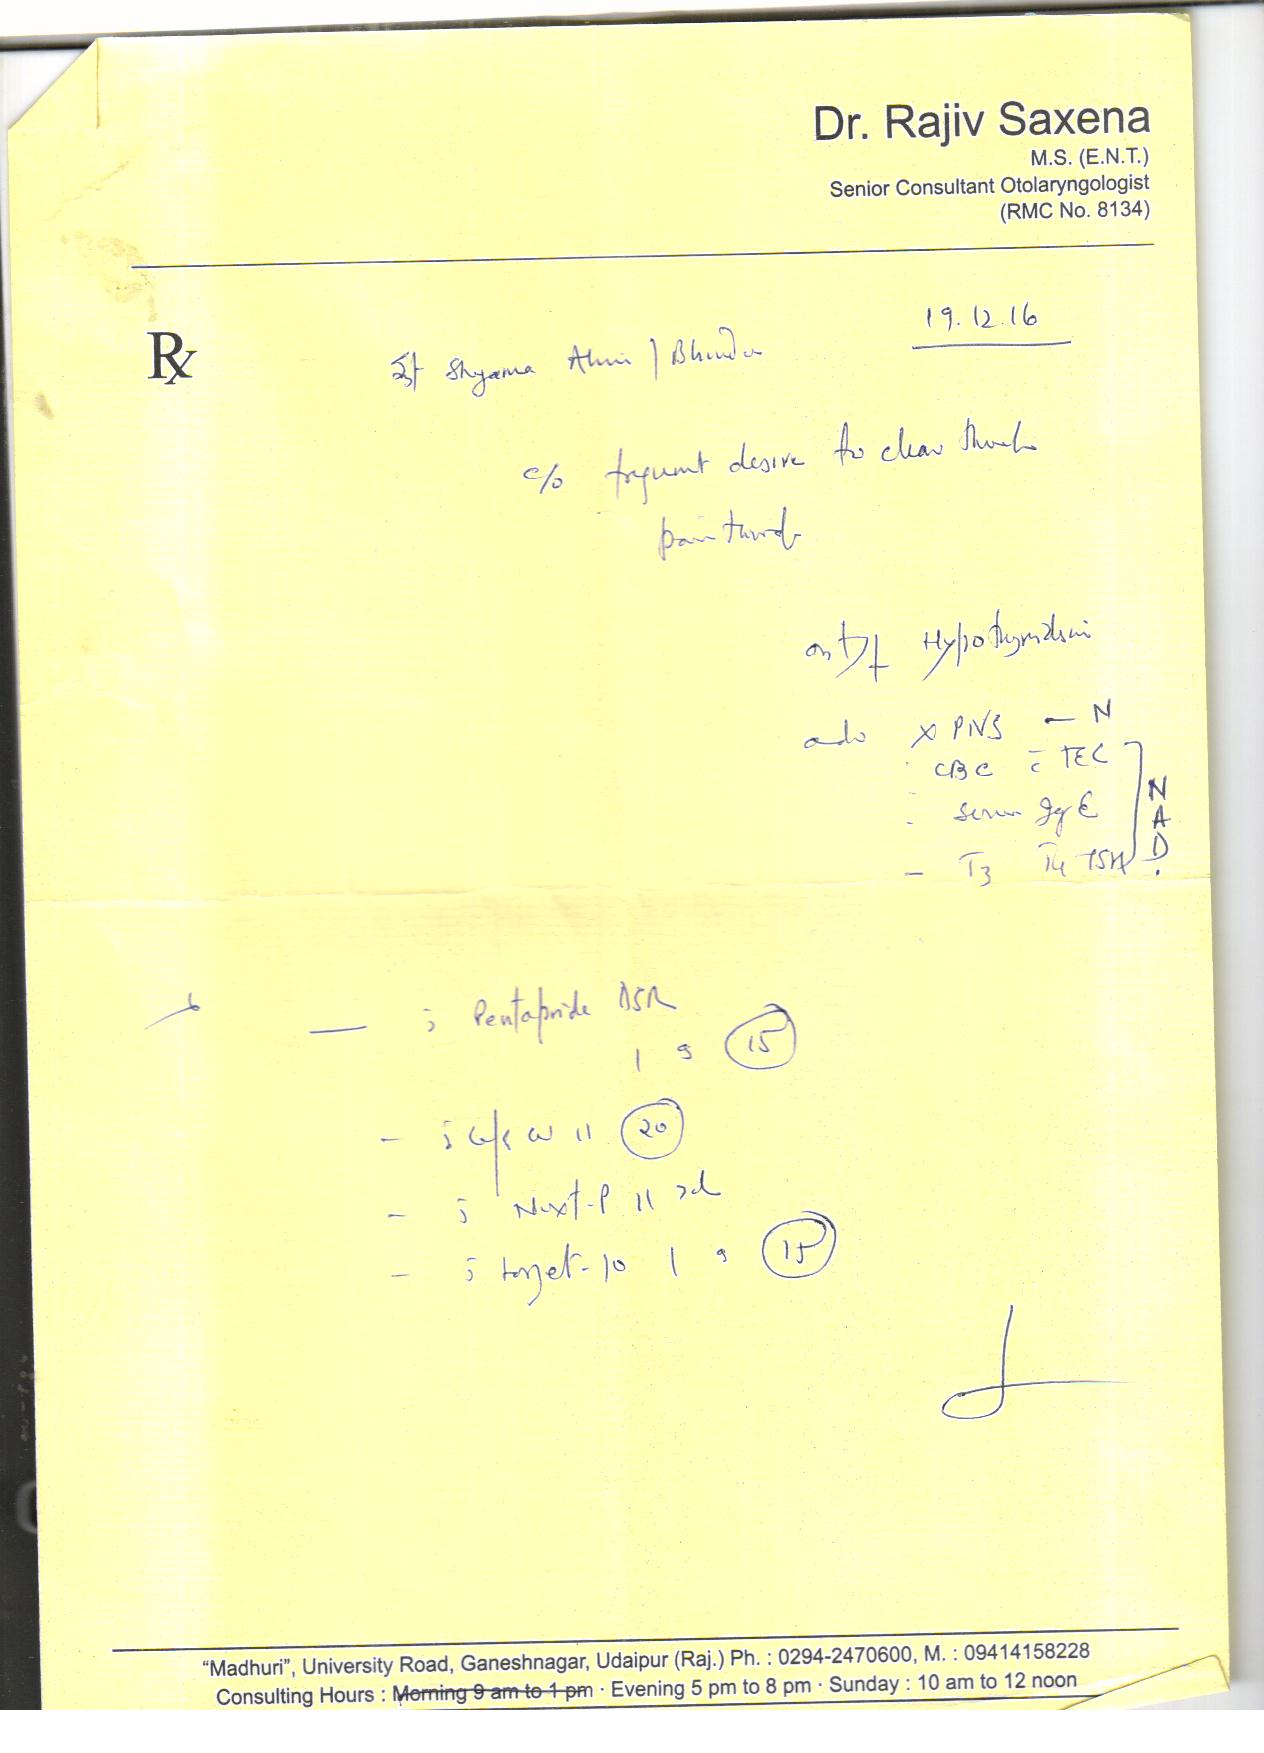 Dr. Rajiv Saxena
M.S. (E.N.T.)
Senior Consultant Otolaryngologist
(RMC No. 8134)
19.12.16
Rx
Shyama / Bhinder
c/o frequent desire to clear throat
pain throat
on Hypothyroidism
adv x PNS - N
CBC c̄ TEC
Serum IgE
- T3 T4 TSH
NAD.
Pentapride DSR
1 (15)
(20)
- Nixt-P 11
- 10 1 (15)
"Madhuri", University Road, Ganeshnagar, Udaipur (Raj.) Ph. : 0294-2470600, M. : 09414158228
Consulting Hours : Morning 9 am to 1 pm · Evening 5 pm to 8 pm · Sunday : 10 am to 12 noon